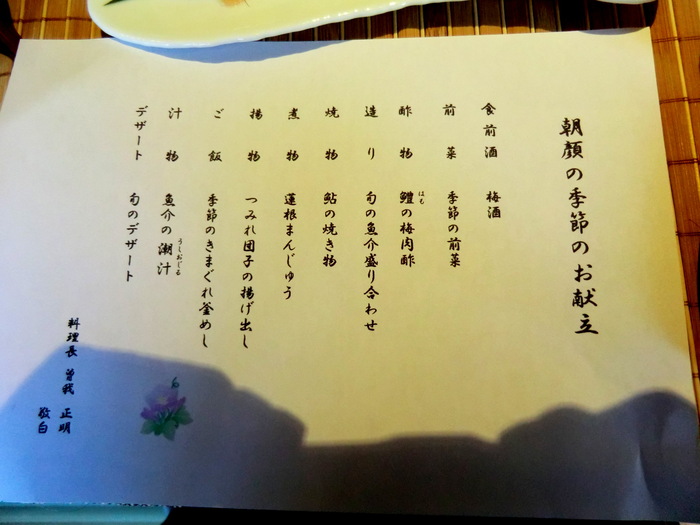 朝顔の季節のお献立
食前酒 梅酒
前菜 季節の前菜
酢物 鱧の梅肉酢
はも
造り 旬の魚介盛り合わせ
焼物 鮎の焼き物
煮物 蓮根まんじゅう
揚物 つみれ団子の揚げ出し
ご飯 季節のきまぐれ釜めし
汁物 魚介の潮汁
うしおじる
デザート 旬のデザート
料理長 曽我 正明
敬白